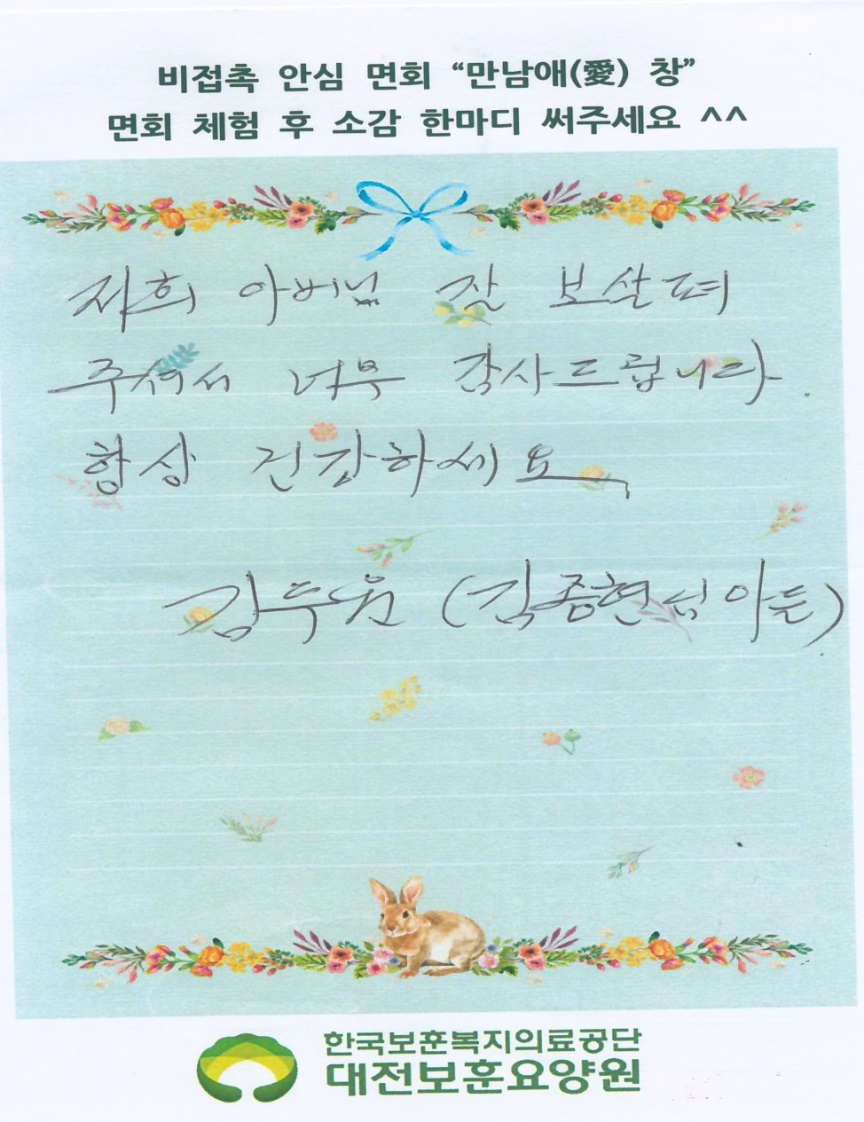 비접촉 안심 면회 “만남애(愛) 창”
면회 체험 후 소감 한마디 써주세요 ^^
저희 아버님 잘 보살펴
주셔서 너무 감사드립니다.
항상 건강하세요
김두원 (김종현님 아들)
한국보훈복지의료공단
대전보훈요양원